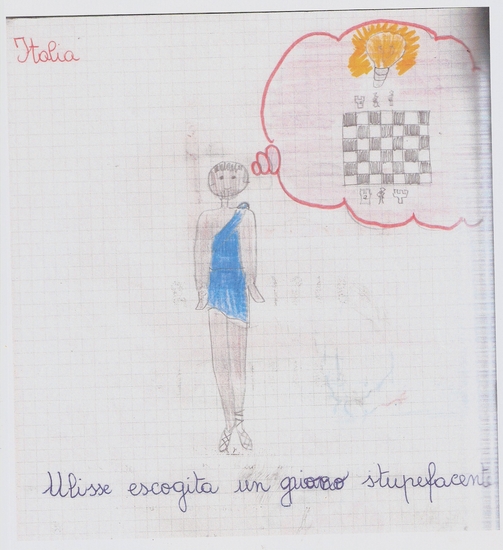 Italia
Ulisse escogita un stupefacen